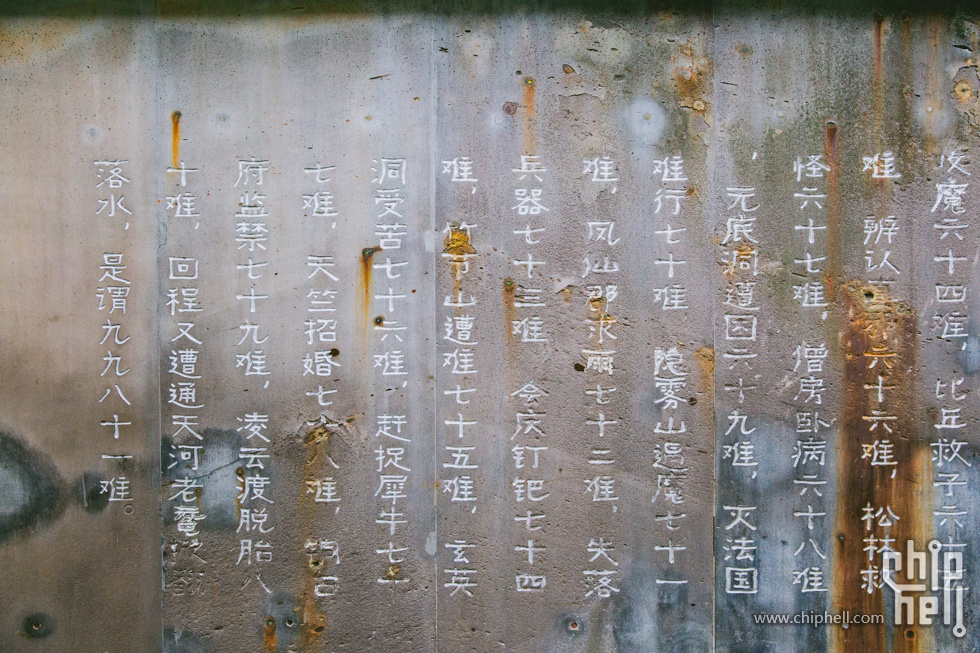 收魔六十四难，比丘救子六十
难 辨认邪六十六难，松林救
怪六十七难，僧房卧病六十八难
，无底洞遭困六十九难，灭法国
难行七十难 隐雾山遇魔七十一
难，凤仙郡求雨七十二难，失落
兵器七十三难 会庆钉钯七十四
难，竹节山遭难七十五难，玄英
洞受苦七十六难，赶捉犀牛七十
七难，天竺招婚七十八难，铜台
府监禁七十九难，凌云渡脱胎八
十难，回程又遭通天河老鼋
落水，是谓九九八十一难。
www.chiphell.com
chip hell